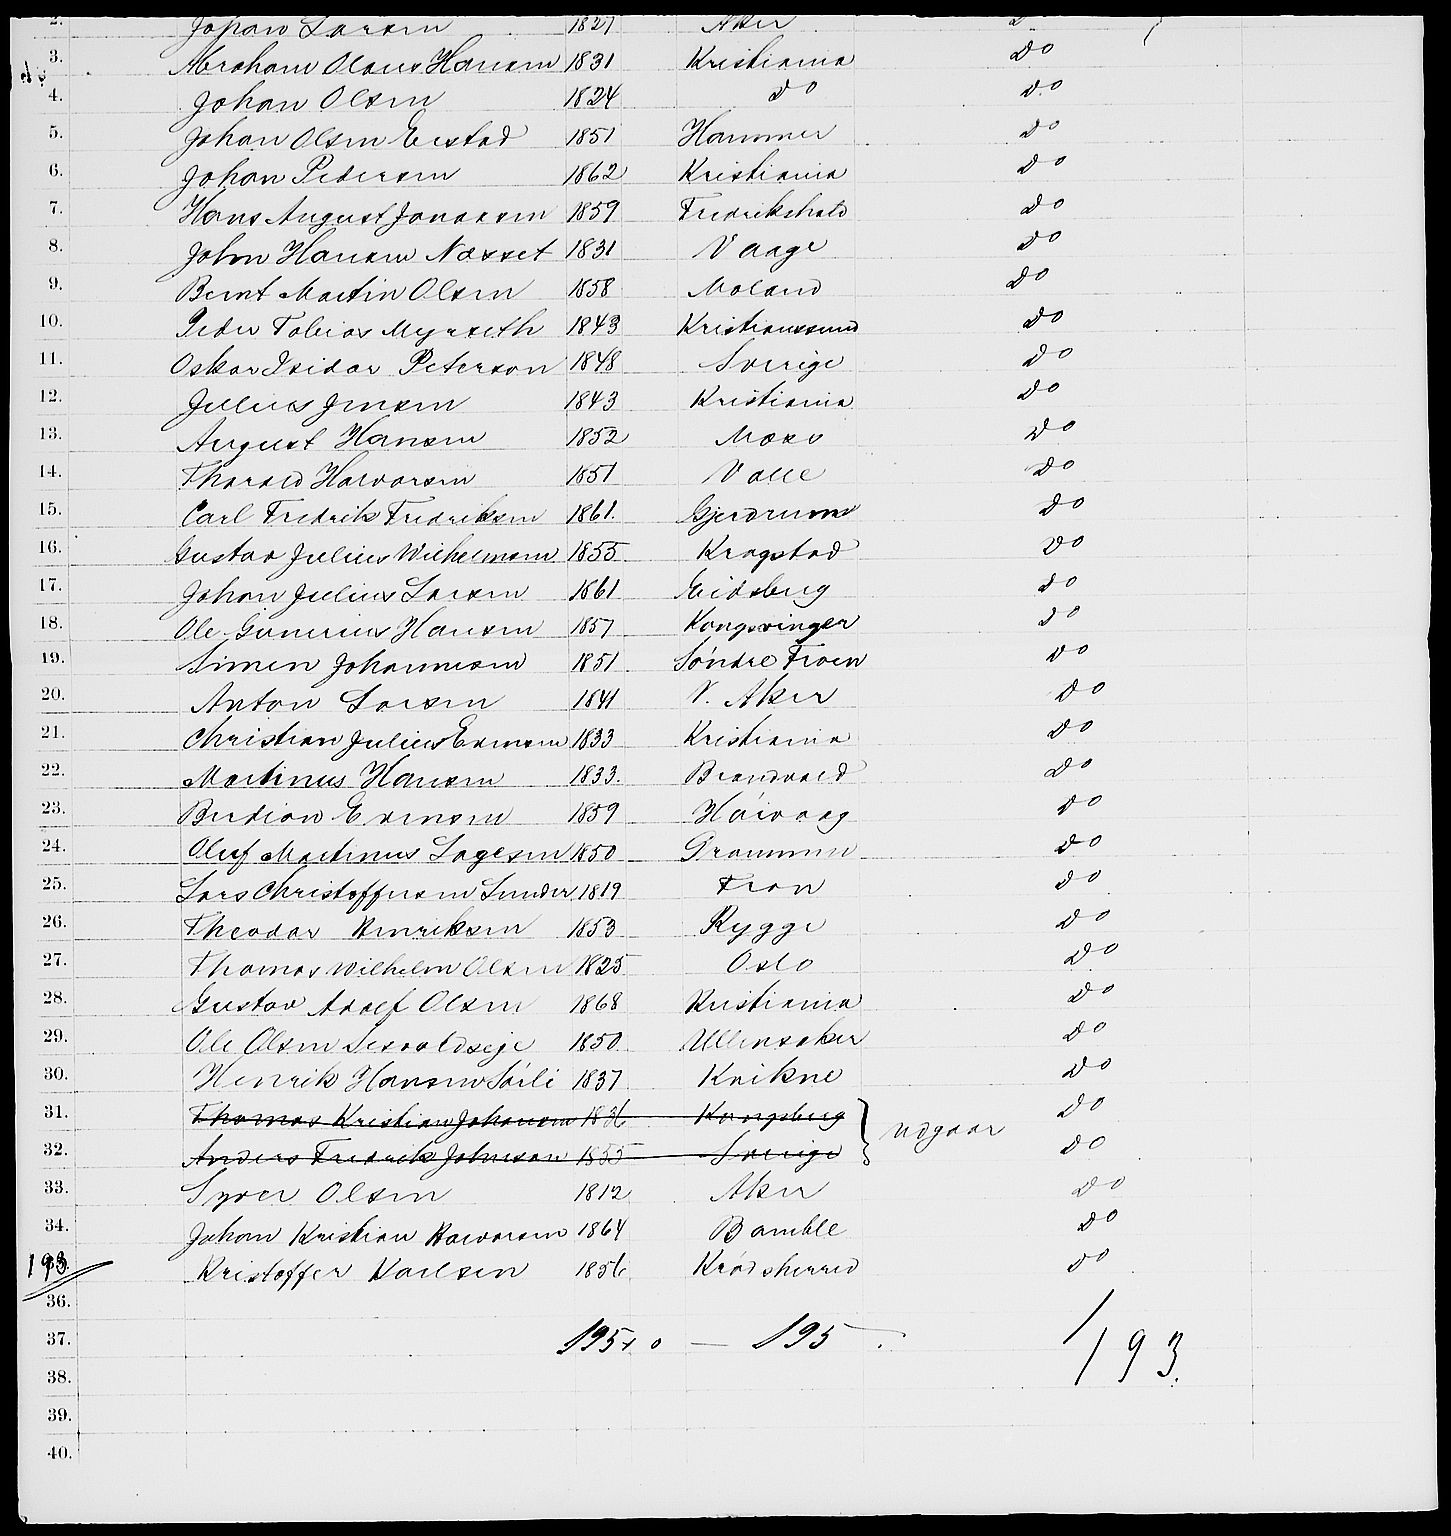 2. Johan Larsen 1827 Aker do
3. Abraham Olaus Hansen 1831 Kristiania do
4. Johan Olsen 1824 do do
5. Johan Olsen Eistad 1851 Hammer do
6. Johan Pedersen 1862 Kristiania do
7. Hans August Jonassen 1859 Fredrikshald do
8. John Hansen Næsset 1831 Vaage do
9. Bernt Martin Olsen 1858 Moland do
10. Peder Tobias Myrseth 1843 Kristianssund do
11. Oskar Isidor Peterson 1848 Sverige do
12. Julius Jensen 1843 Kristiania do
13. August Hansen 1852 Moss do
14. Tharald Halvorsen 1851 Valle do
15. Carl Fredrik Fredriksen 1861. Gjerdrum do
16. Gustav Julius Wilhelmsen 1855 Kragstad do
17. Johan Julius Larsen 1861 Eidsberg do
18. Ole Gunerius Hansen 1857 Kongsvinger do
19. Simen Johannesen 1851 Søndre Fron do
20. Anton Larsen 1841 V. Aker do
21. Christian Julius Evensen 1833 Kristiania do
22. Martinus Hansen 1833. Brandvold do
23. Berdion Evensen 1859 Høivaag do
24. Oluf Martinus Lagesen 1850 Drammen do
25. Lars Christoffersen Sunder 1819 Fron do
26. Theodor Henriksen 1853 Rygge do
27. Thomas Wilhelm Olsen 1825 Oslo do
28. Gustav Adolf Olsen 1868 Kristiania do
29. Ole Olsen 1850 Ullensaker do
30. Henrik Hansen Sørli 1837 Kvikne do
31. Thomas Kristian Johansen 1836 Kongsberg } udgaar do
32. Anders Fredrik Johnson 1855 Sverige do
33. Syver Olsen 1812 Aker do
34. Johan Kristian Halvorsen 1864 Bamble do
193 Kristoffer Karlsen 1856 Krødsherred do
36.
37. 195 + 0 — 195.
38. 193.
39.
40.